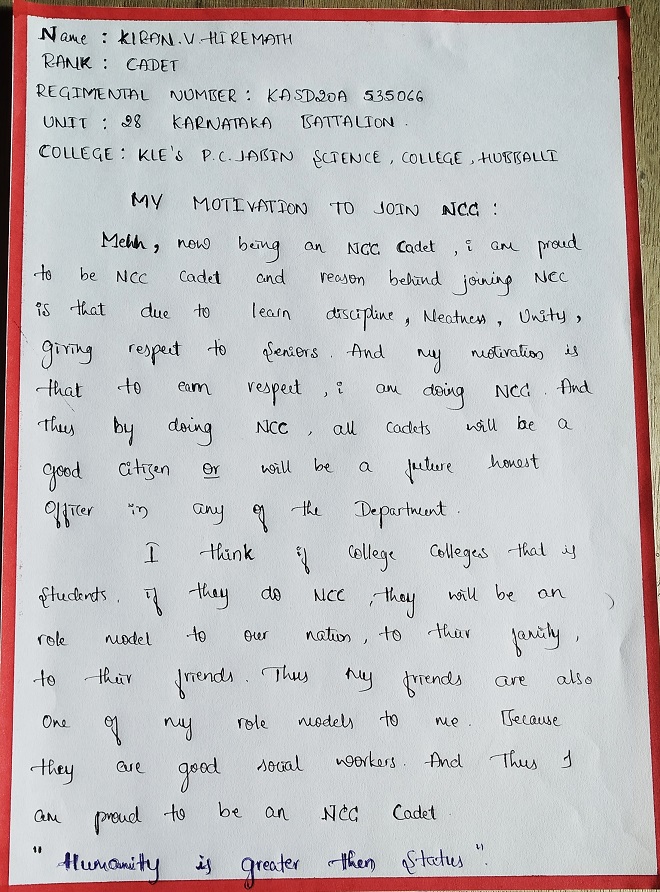 Name : KIRAN.V.HIREMATH
RANK : CADET
REGIMENTAL NUMBER : KASD20A 535066
UNIT : 28 KARNATAKA BATTALION.
COLLEGE : KLE's P.C.JABIN SCIENCE, COLLEGE, HUBBALLI
MY MOTIVATION TO JOIN NCC :
, now being an NCC Cadet, i am proud
to be NCC Cadet and reason behind joining NCC
is that due to learn discipline, Neatness, Unity,
giving respect to Seniors. And my motivation is
that to earn respect, i am doing NCC. And
Thus by doing NCC, all Cadets will be a
good Citizen or will be a future honest
Officer in any of the Department.
I think if College Colleges that is
Students. if they do NCC, they will be an
role model to our nation, to their family,
to their friends. Thus My friends are also
One of my role models to me. Because
they are good social workers. And Thus I
am proud to be an NCC Cadet
" Humanity is greater then Status".